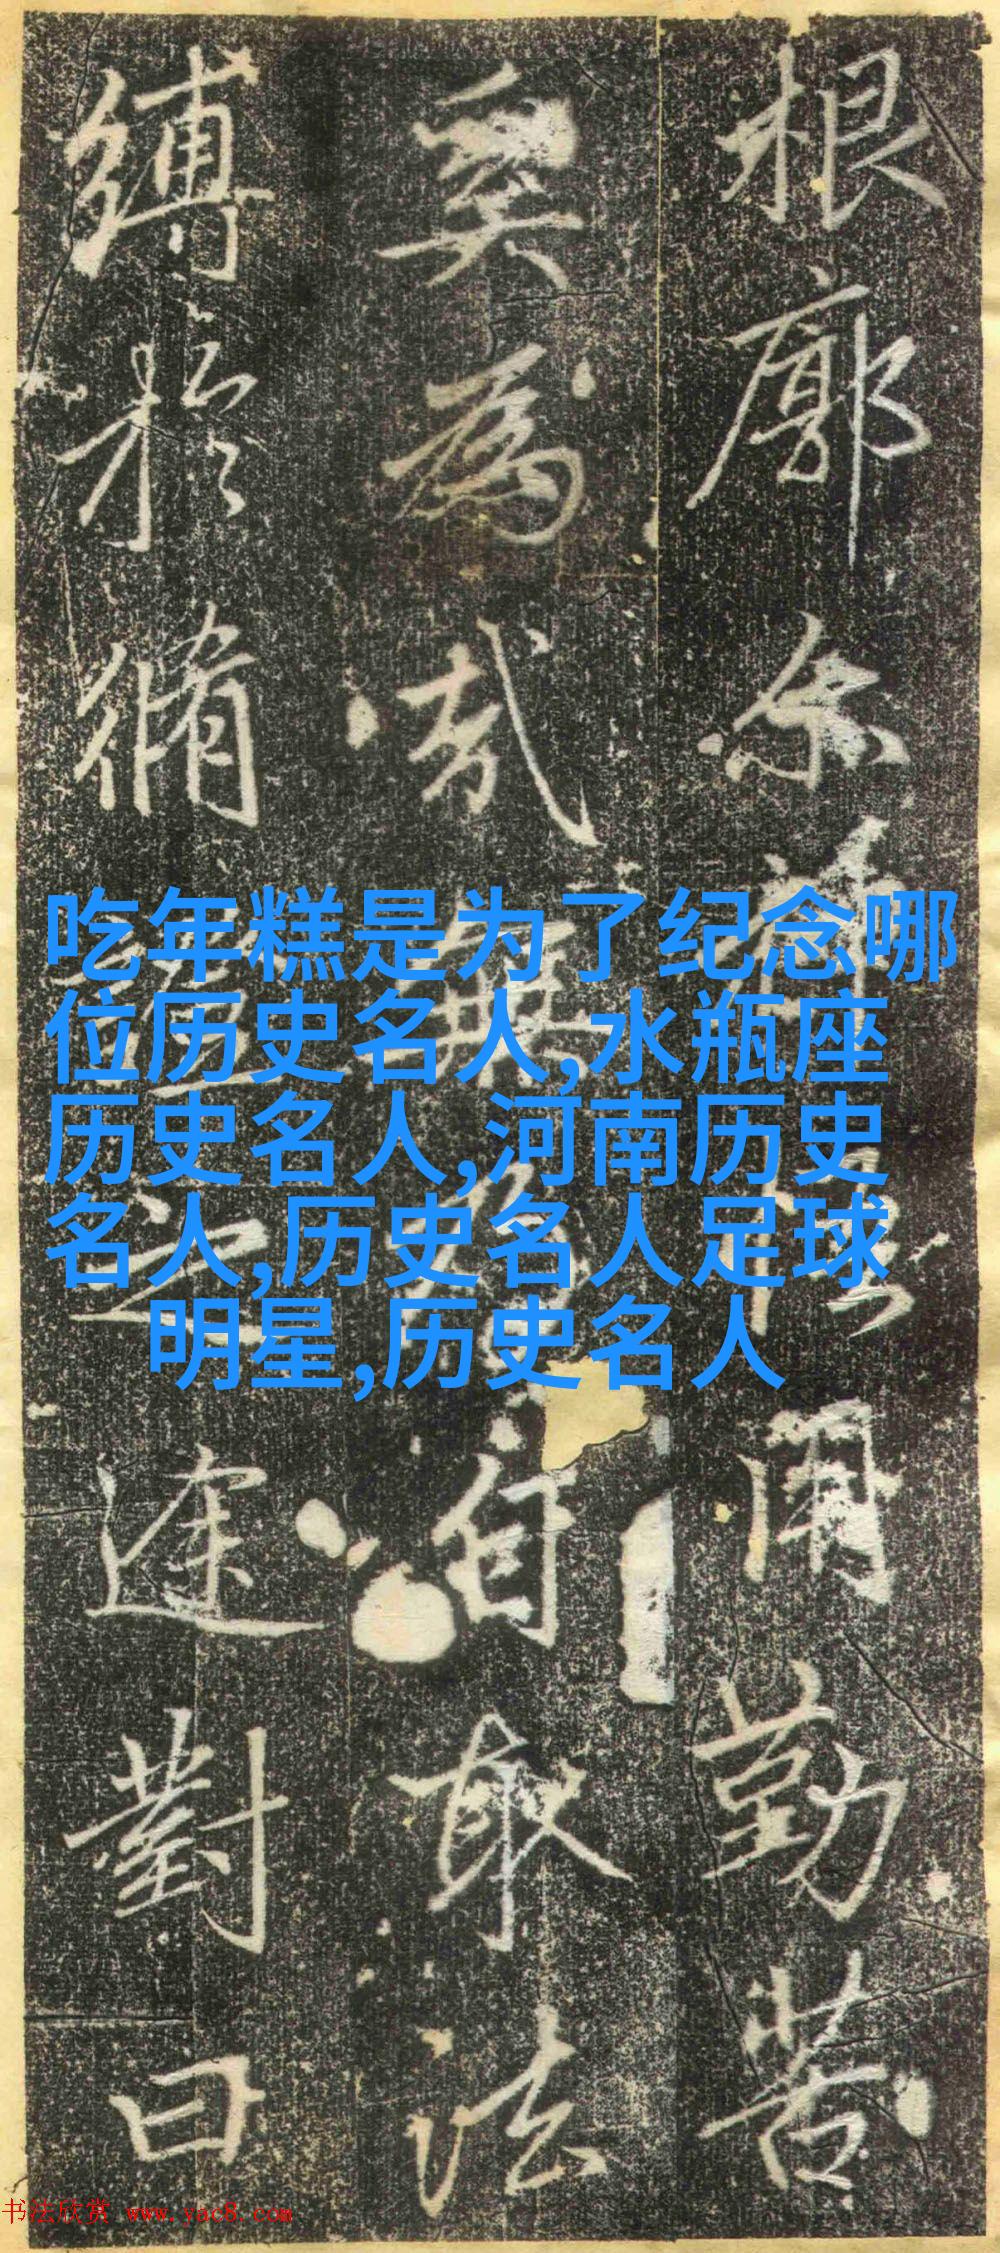 根廓尔用勤苦
奚為哉無自取法
縛於脩證之途對曰
吃年糕是为了纪念哪
位历史名人,水瓶座
历史名人,河南历史
名人,历史名人足球
明星,历史名人
书法欣赏 www.yac8.com